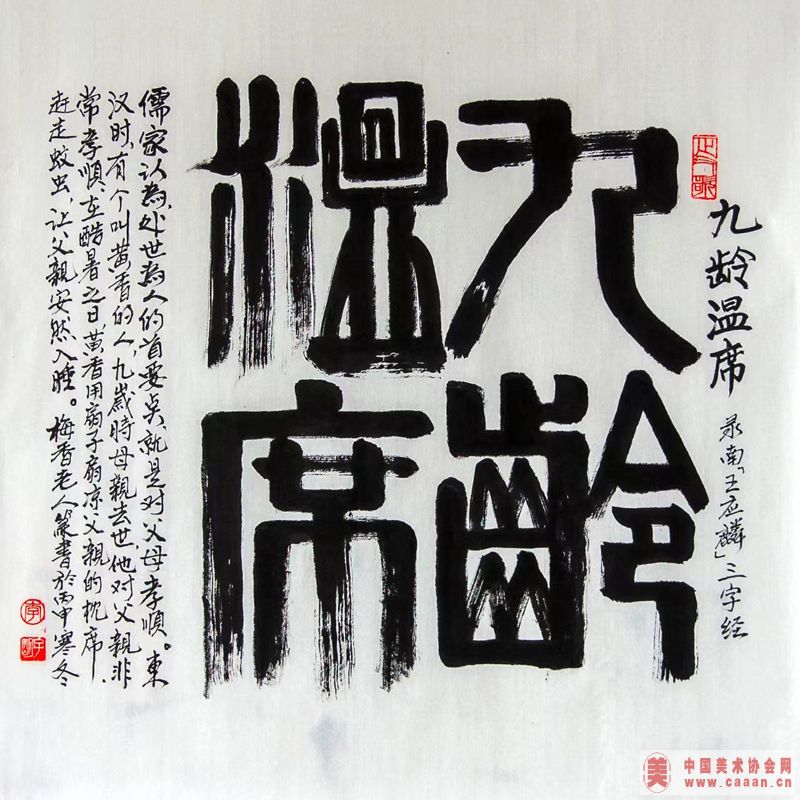 九龄温席 录南「王应麟」三字经
九齡
溫席
儒家认為,处世為人的首要点,就是对父母孝順。東
汉时,有个叫黄香的人,九歲時母親去世,他对父親非
常孝順,在酷暑之日,黄香用扇子扇凉父親的枕席,
赶走蚊虫,让父親安然入睡。梅香老人篆書於丙申寒冬
李
美 中国美术协会网
www.caaan.cn